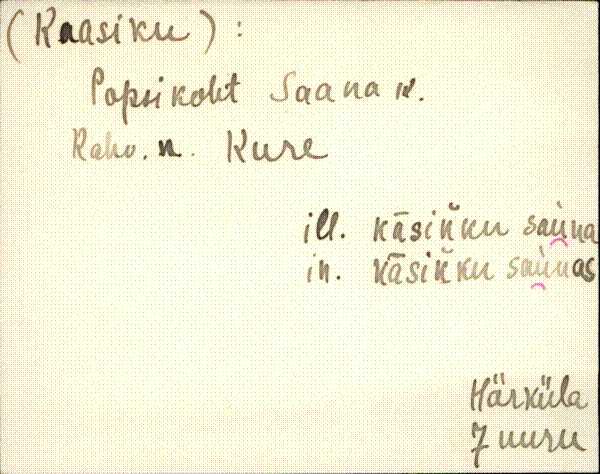 (Kaasiku) :
Popsikoht Saana n.
Rahv. n. Kure
ill. kāsiňku sau̯na
in. kāsiňku sau̯nas
Härküla
7 nuru